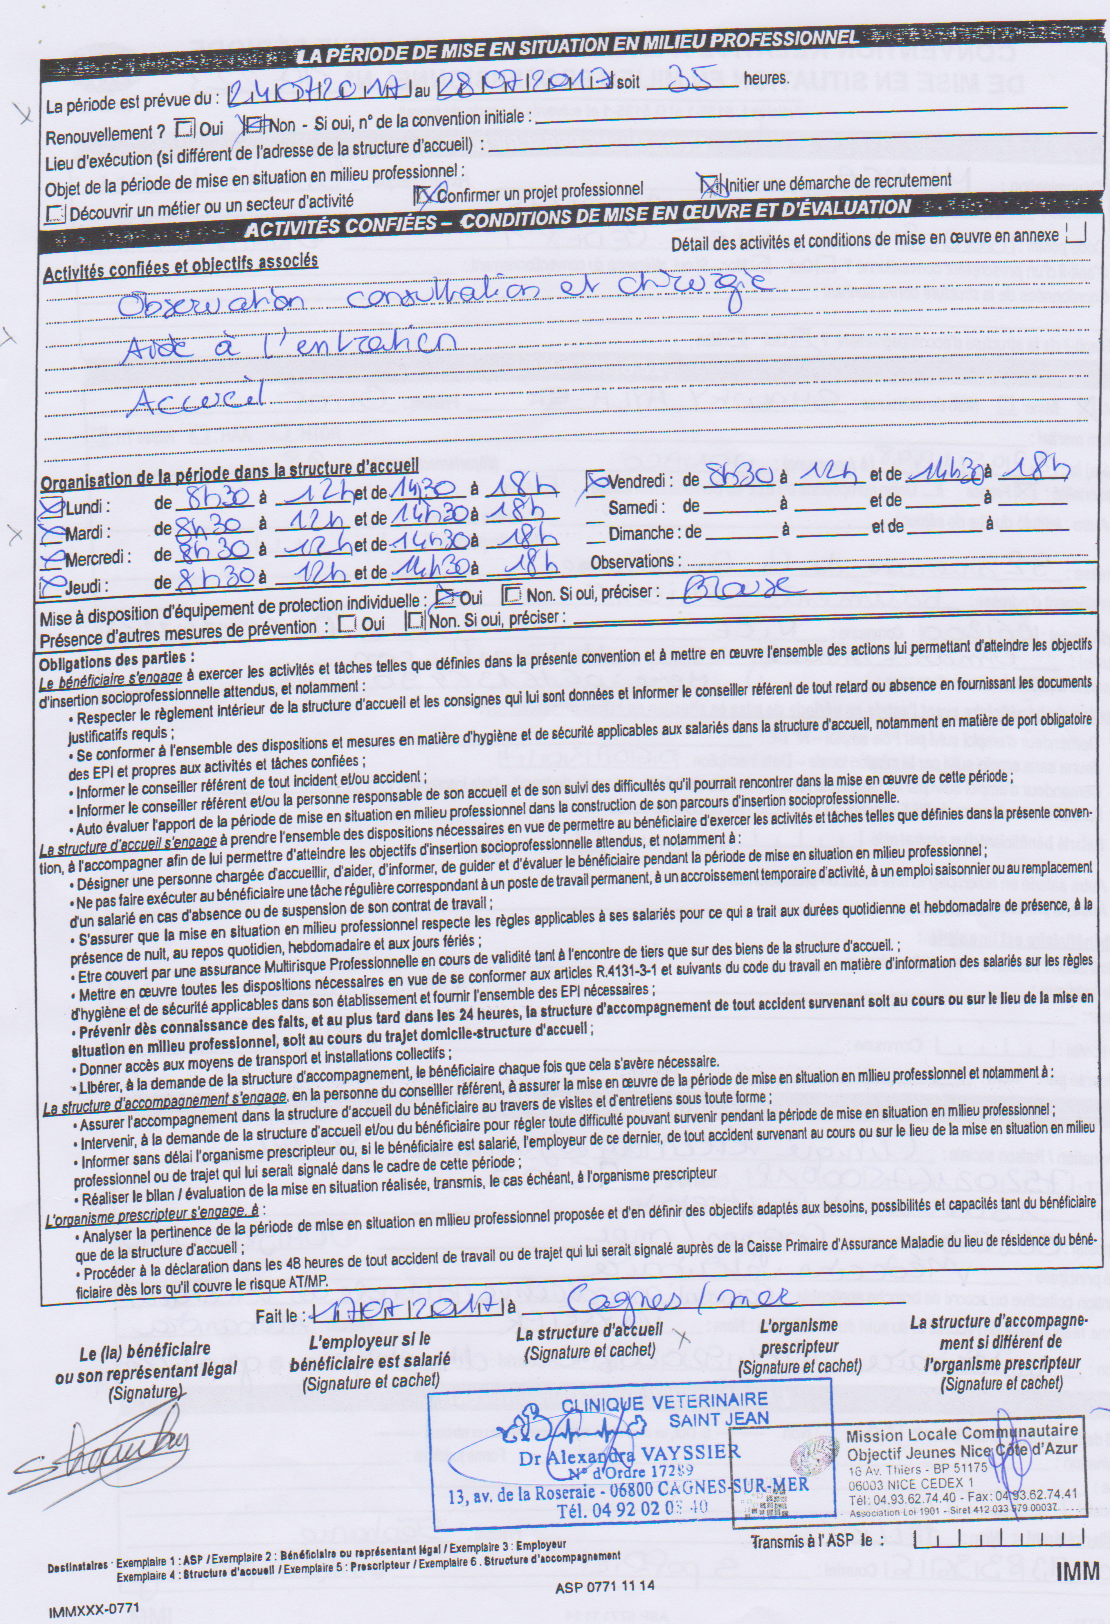 LA PÉRIODE DE MISE EN SITUATION EN MILIEU PROFESSIONNEL
La période est prévue du : 24072017 au 28072017 soit 35 heures.
Renouvellement ? Oui Non - Si oui, n° de la convention initiale :
Lieu d'exécution (si différent de l'adresse de la structure d'accueil) :
Objet de la période de mise en situation en milieu professionnel :
Découvrir un métier ou un secteur d'activité Confirmer un projet professionnel Initier une démarche de recrutement
ACTIVITÉS CONFIÉES – CONDITIONS DE MISE EN ŒUVRE ET D'ÉVALUATION
Détail des activités et conditions de mise en œuvre en annexe
Activités confiées et objectifs associés
Observation consultation et chirurgie
Aide à l'entretien
Accueil
Organisation de la période dans la structure d'accueil
Lundi : de 8h30 à 12h et de 14h30 à 18h
Mardi : de 8h30 à 12h et de 14h30 à 18h
Mercredi : de 8h30 à 12h et de 14h30 à 18h
Jeudi : de 8h30 à 12h et de 14h30 à 18h
Vendredi : de 8h30 à 12h et de 14h30 à 18h
Samedi : de à et de à
Dimanche : de à et de à
Observations :
Mise à disposition d'équipement de protection individuelle : Oui Non. Si oui, préciser : Blouse
Présence d'autres mesures de prévention : Oui Non. Si oui, préciser :
Obligations des parties :
Le bénéficiaire s'engage à exercer les activités et tâches telles que définies dans la présente convention et à mettre en œuvre l'ensemble des actions lui permettant d'atteindre les objectifs
d'insertion socioprofessionnelle attendus, et notamment :
• Respecter le règlement intérieur de la structure d'accueil et les consignes qui lui sont données et informer le conseiller référent de tout retard ou absence en fournissant les documents
justificatifs requis ;
• Se conformer à l'ensemble des dispositions et mesures en matière d'hygiène et de sécurité applicables aux salariés dans la structure d'accueil, notamment en matière de port obligatoire
des EPI et propres aux activités et tâches confiées ;
• Informer le conseiller référent de tout incident et/ou accident ;
• Informer le conseiller référent et/ou la personne responsable de son accueil et de son suivi des difficultés qu'il pourrait rencontrer dans la mise en œuvre de cette période ;
• Auto évaluer l'apport de la période de mise en situation en milieu professionnel dans la construction de son parcours d'insertion socioprofessionnelle.
La structure d'accueil s'engage à prendre l'ensemble des dispositions nécessaires en vue de permettre au bénéficiaire d'exercer les activités et tâches telles que définies dans la présente conven-
tion, à l'accompagner afin de lui permettre d'atteindre les objectifs d'insertion socioprofessionnelle attendus, et notamment à :
• Désigner une personne chargée d'accueillir, d'aider, d'informer, de guider et d'évaluer le bénéficiaire pendant la période de mise en situation en milieu professionnel ;
• Ne pas faire exécuter au bénéficiaire une tâche régulière correspondant à un poste de travail permanent, à un accroissement temporaire d'activité, à un emploi saisonnier ou au remplacement
d'un salarié en cas d'absence ou de suspension de son contrat de travail ;
• S'assurer que la mise en situation en milieu professionnel respecte les règles applicables à ses salariés pour ce qui a trait aux durées quotidienne et hebdomadaire de présence, à la
présence de nuit, au repos quotidien, hebdomadaire et aux jours fériés ;
• Etre couvert par une assurance Multirisque Professionnelle en cours de validité tant à l'encontre de tiers que sur des biens de la structure d'accueil. ;
• Mettre en œuvre toutes les dispositions nécessaires en vue de se conformer aux articles R.4131-3-1 et suivants du code du travail en matière d'information des salariés sur les règles
d'hygiène et de sécurité applicables dans son établissement et fournir l'ensemble des EPI nécessaires ;
• Prévenir dès connaissance des faits, et au plus tard dans les 24 heures, la structure d'accompagnement de tout accident survenant soit au cours ou sur le lieu de la mise en
situation en milieu professionnel, soit au cours du trajet domicile-structure d'accueil ;
• Donner accès aux moyens de transport et installations collectifs ;
• Libérer, à la demande de la structure d'accompagnement, le bénéficiaire chaque fois que cela s'avère nécessaire.
La structure d'accompagnement s'engage, en la personne du conseiller référent, à assurer la mise en œuvre de la période de mise en situation en milieu professionnel et notamment à :
• Assurer l'accompagnement dans la structure d'accueil du bénéficiaire au travers de visites et d'entretiens sous toute forme ;
• Intervenir, à la demande de la structure d'accueil et/ou du bénéficiaire pour régler toute difficulté pouvant survenir pendant la période de mise en situation en milieu professionnel ;
• Informer sans délai l'organisme prescripteur ou, si le bénéficiaire est salarié, l'employeur de ce dernier, de tout accident survenant au cours ou sur le lieu de la mise en situation en milieu
professionnel ou de trajet qui lui serait signalé dans le cadre de cette période ;
• Réaliser le bilan / évaluation de la mise en situation réalisée, transmis, le cas échéant, à l'organisme prescripteur
L'organisme prescripteur s'engage à :
• Analyser la pertinence de la période de mise en situation en milieu professionnel proposée et d'en définir des objectifs adaptés aux besoins, possibilités et capacités tant du bénéficiaire
que de la structure d'accueil ;
• Procéder à la déclaration dans les 48 heures de tout accident de travail ou de trajet qui lui serait signalé auprès de la Caisse Primaire d'Assurance Maladie du lieu de résidence du béné-
ficiaire dès lors qu'il couvre le risque AT/MP.
Fait le : 17072017 à Cagnes / mer
Le (la) bénéficiaire
ou son représentant légal
(Signature)
L'employeur si le
bénéficiaire est salarié
(Signature et cachet)
La structure d'accueil
(Signature et cachet)
L'organisme
prescripteur
(Signature et cachet)
La structure d'accompagne-
ment si différent de
l'organisme prescripteur
(Signature et cachet)
CLINIQUE VETERINAIRE
SAINT JEAN
Dr Alexandra VAYSSIER
N° d'Ordre 17289
13, av. de la Roseraie - 06800 CAGNES-SUR-MER
Tél. 04 92 02 40
Mission Locale Communautaire
Objectif Jeunes Nice Côte d'Azur
16 Av. Thiers - BP 51175
06003 NICE CEDEX 1
Tél: 04.93.62.74.40 - Fax: 04.93.62.74.41
Association Loi 1901 - Siret 412 033 979 00037
Transmis à l'ASP le :
Destinataires : Exemplaire 1 : ASP / Exemplaire 2 : Bénéficiaire ou représentant légal / Exemplaire 3 : Employeur
Exemplaire 4 : Structure d'accueil / Exemplaire 5 : Prescripteur / Exemplaire 6 : Structure d'accompagnement
IMM
ASP 0771 11 14
IMMXXX-0771